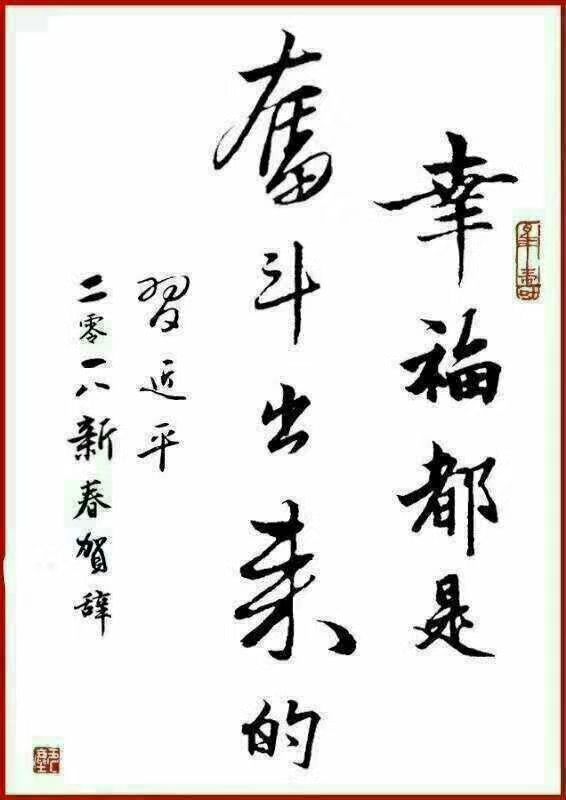 幸福都是
奮斗出来的
習近平
二零一八新春賀辞